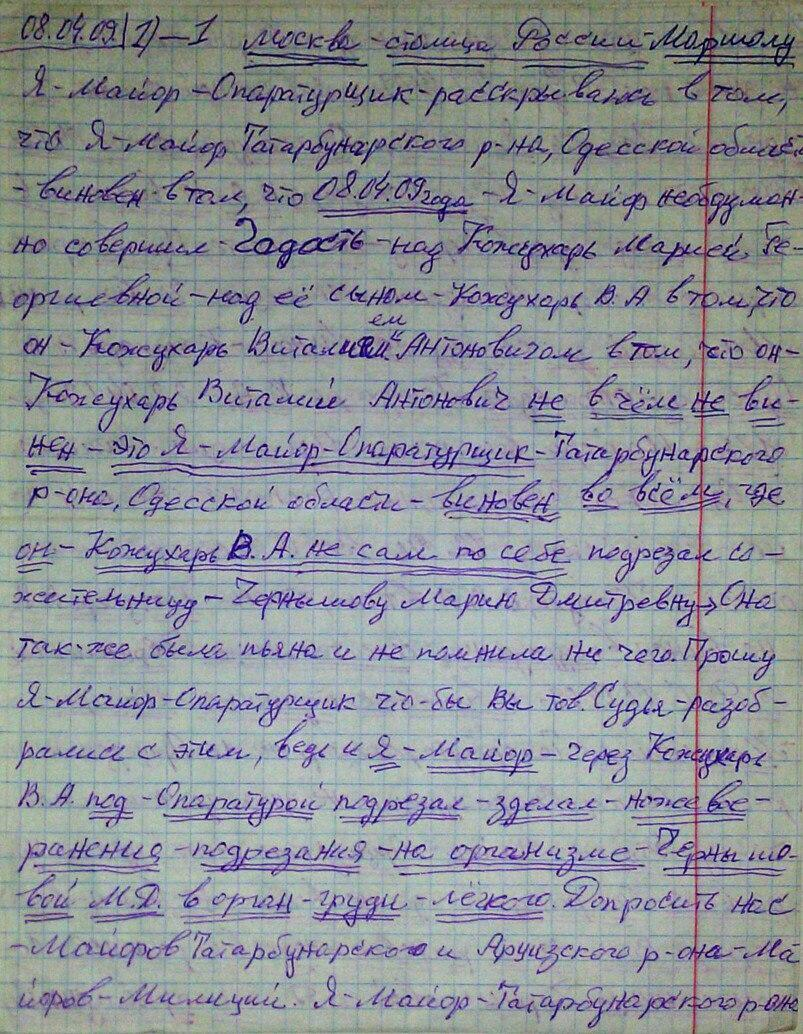 08.04.09 (1)-1 Москва - столица России - Маршалу
Я - Майор - Опаратурщик - расскрываюсь в том,
что Я - Майор Татарбунарского р-на, Одесской области
- виновен в том, что 08.04.09 года - Я - Майор необдуман-
но совершил - Гадость - над Кожухарь Марией Ге-
оргиевной - над её сыном - Кожухарь В.А в том, что
он - Кожухарь - Виталием Антоновичом в том, что он -
Кожухарь Виталий Антонович не в чём не ви-
нен - это Я - Майор - Опаратурщик - Татарбунарского
р-она, Одесской области - виновен во всём, где
он - Кожухарь В.А. не сам по себе подрезал со -
жительницу - Чернышову Марию Дмитревну → Она
так-же была пьяна и не помнила ни чего. Прошу
Я - Майор - Опаратурщик что-бы Вы тов. Судья - разоб -
рались с этим, ведь и Я - Майор - через Кожухарь
В.А. под - Опаратурой подрезал - зделал - ножевое -
ранения - подрезания - на организме - Чернышо-
вой М.Д. в орган - груди - лёгкого. Допросить нас
- Майоров Татарбунарского и Арцизского р-она - Ма
йоров - Милиции. Я - Майор - Татарбунарского р-она